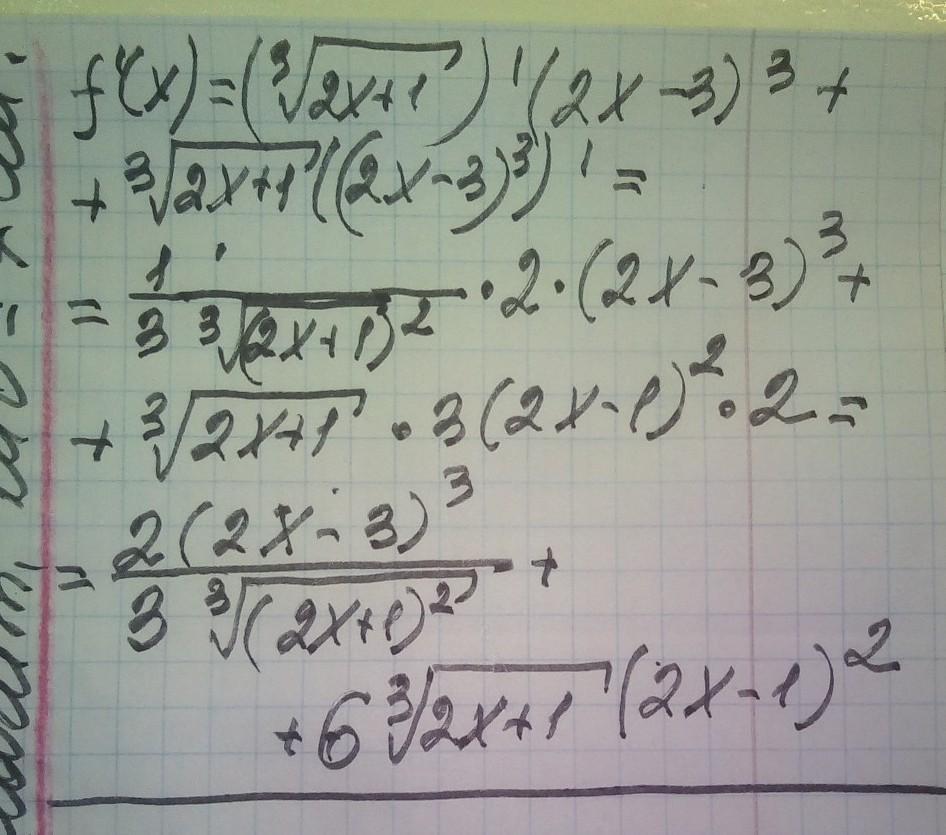 f'(x) = (∛(2x+1))' (2x-3)³ +
+ ∛(2x+1) ((2x-3)³)' =
= 1/(3∛(2x+1)²) · 2 · (2x-3)³ +
+ ∛(2x+1) · 3(2x-1)² · 2 =
= 2(2x-3)³/(3∛((2x+1)²)) +
+ 6∛(2x+1) (2x-1)²